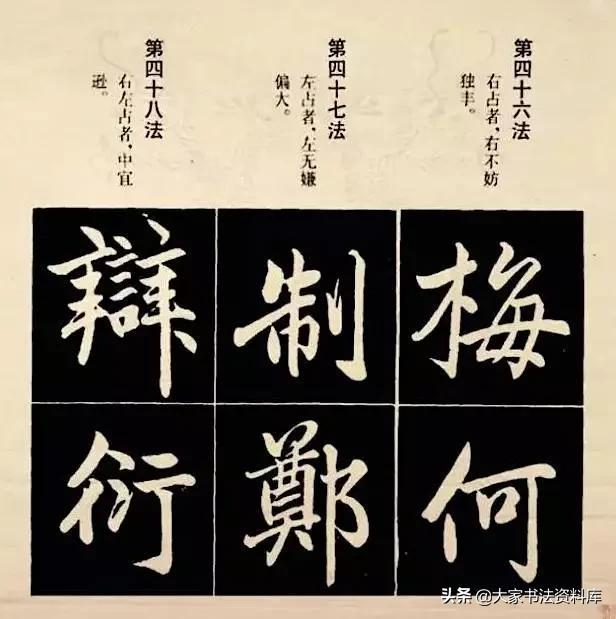 第四十六法
右占者，右不妨
独丰。
第四十七法
左占者，左无嫌
偏大。
第四十八法
右左占者，中宜
逊。
梅
何
制
鄭
辯
衍
头条 @大家书法资料库